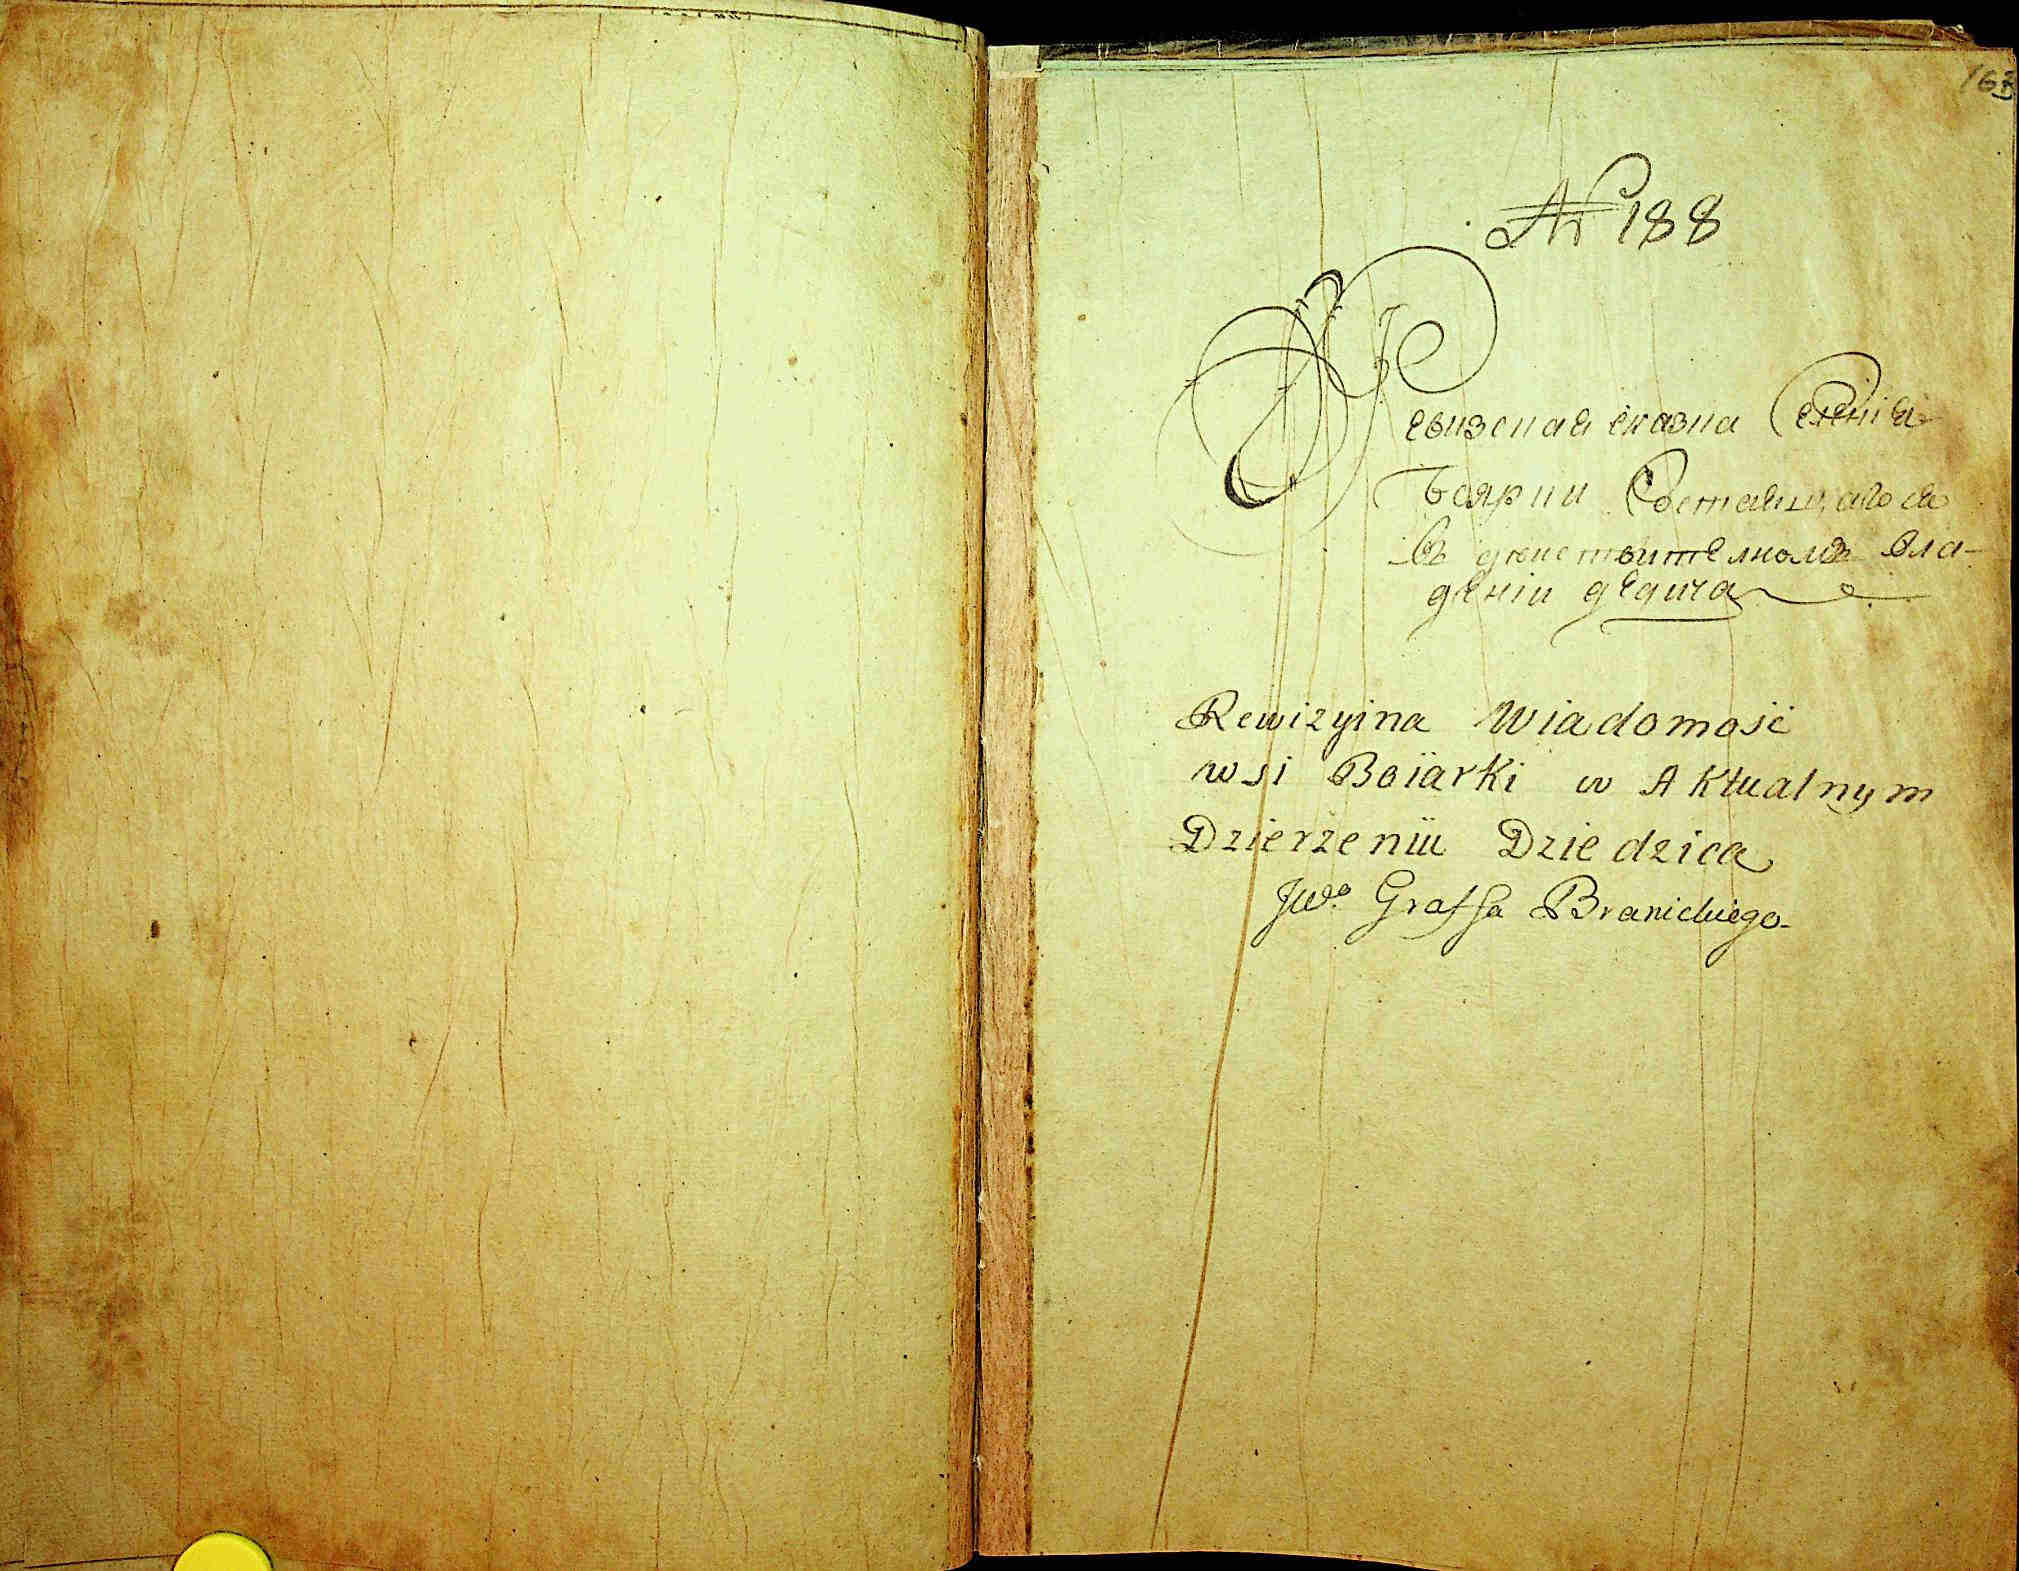 № 188
Ревизская сказка Селенія
Боярки Состоящагося
Въ действителномъ вла-
деніи дедича
Rewizyina Wiadomość
wsi Boiarki w Aktualnym
Dzierżeniu Dziedzica
JWo Graffa Branickiego.